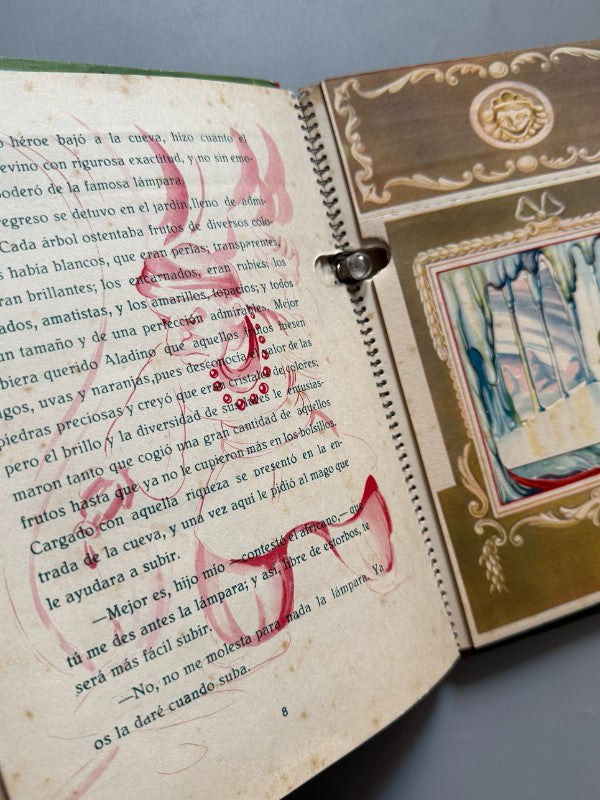 o héroe bajó a la cueva, hizo cuanto el
evino con rigurosa exactitud, y no sin emo-
poderó de la famosa lámpara.
regreso se detuvo en el jardín, lleno de admi-
Cada árbol ostentaba frutos de diversos colo-
s había blancos, que eran perlas; transparentes,
ran brillantes; los encarnados, eran rubíes; los
ados, amatistas, y los amarillos, topacios; y todos
un tamaño y de una perfección admirables. Mejor
biera querido Aladino que aquellos frutos fuesen
igos, uvas y naranjas, pues desconocía el valor de las
piedras preciosas y creyó que eran cristales de colores;
pero el brillo y la diversidad de sus luces le entusias-
maron tanto que cogió una gran cantidad de aquellos
frutos hasta que ya no le cupieron más en los bolsillos.
Cargado con aquella riqueza se presentó en la en-
trada de la cueva, y una vez aquí le pidió al mago que
le ayudara a subir.
—Mejor es, hijo mío —contestó el africano,— que
tú me des antes la lámpara; y así, libre de estorbos, te
será más fácil subir.
—No, no me molesta para nada la lámpara. Ya
os la daré cuando suba.
8